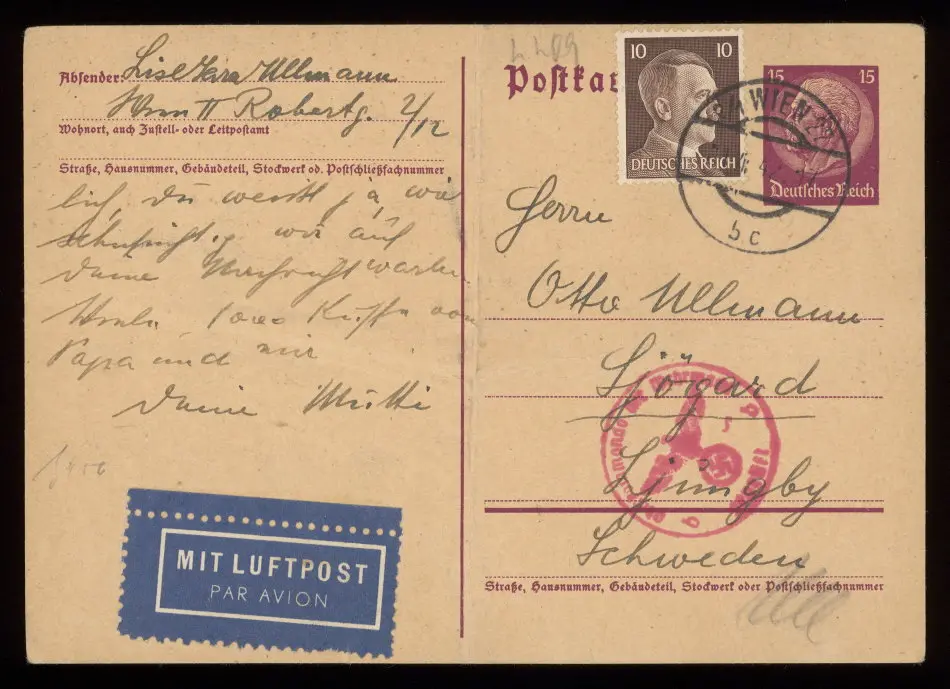 Absender: Lise Sara Ullmann
Wien II Robertg. 2/12
Wohnort, auch Zustell- oder Leitpostamt
Straße, Hausnummer, Gebäudeteil, Stockwerk od. Postschließfachnummer
lich, Du weißt ja, wie
sehnsüchtig wir auf
Deine Nachricht warten
1000 Küsse von
Papa und mir
Deine Mutti
MIT LUFTPOST
PAR AVION
Postkar
10 10
DEUTSCHES REICH
WIEN
bc
15 15
Deutsches Reich
Herrn
Otto Ullmann
Sjögard
Ljungby
Schweden
Straße, Hausnummer, Gebäudeteil, Stockwerk oder Postschließfachnummer